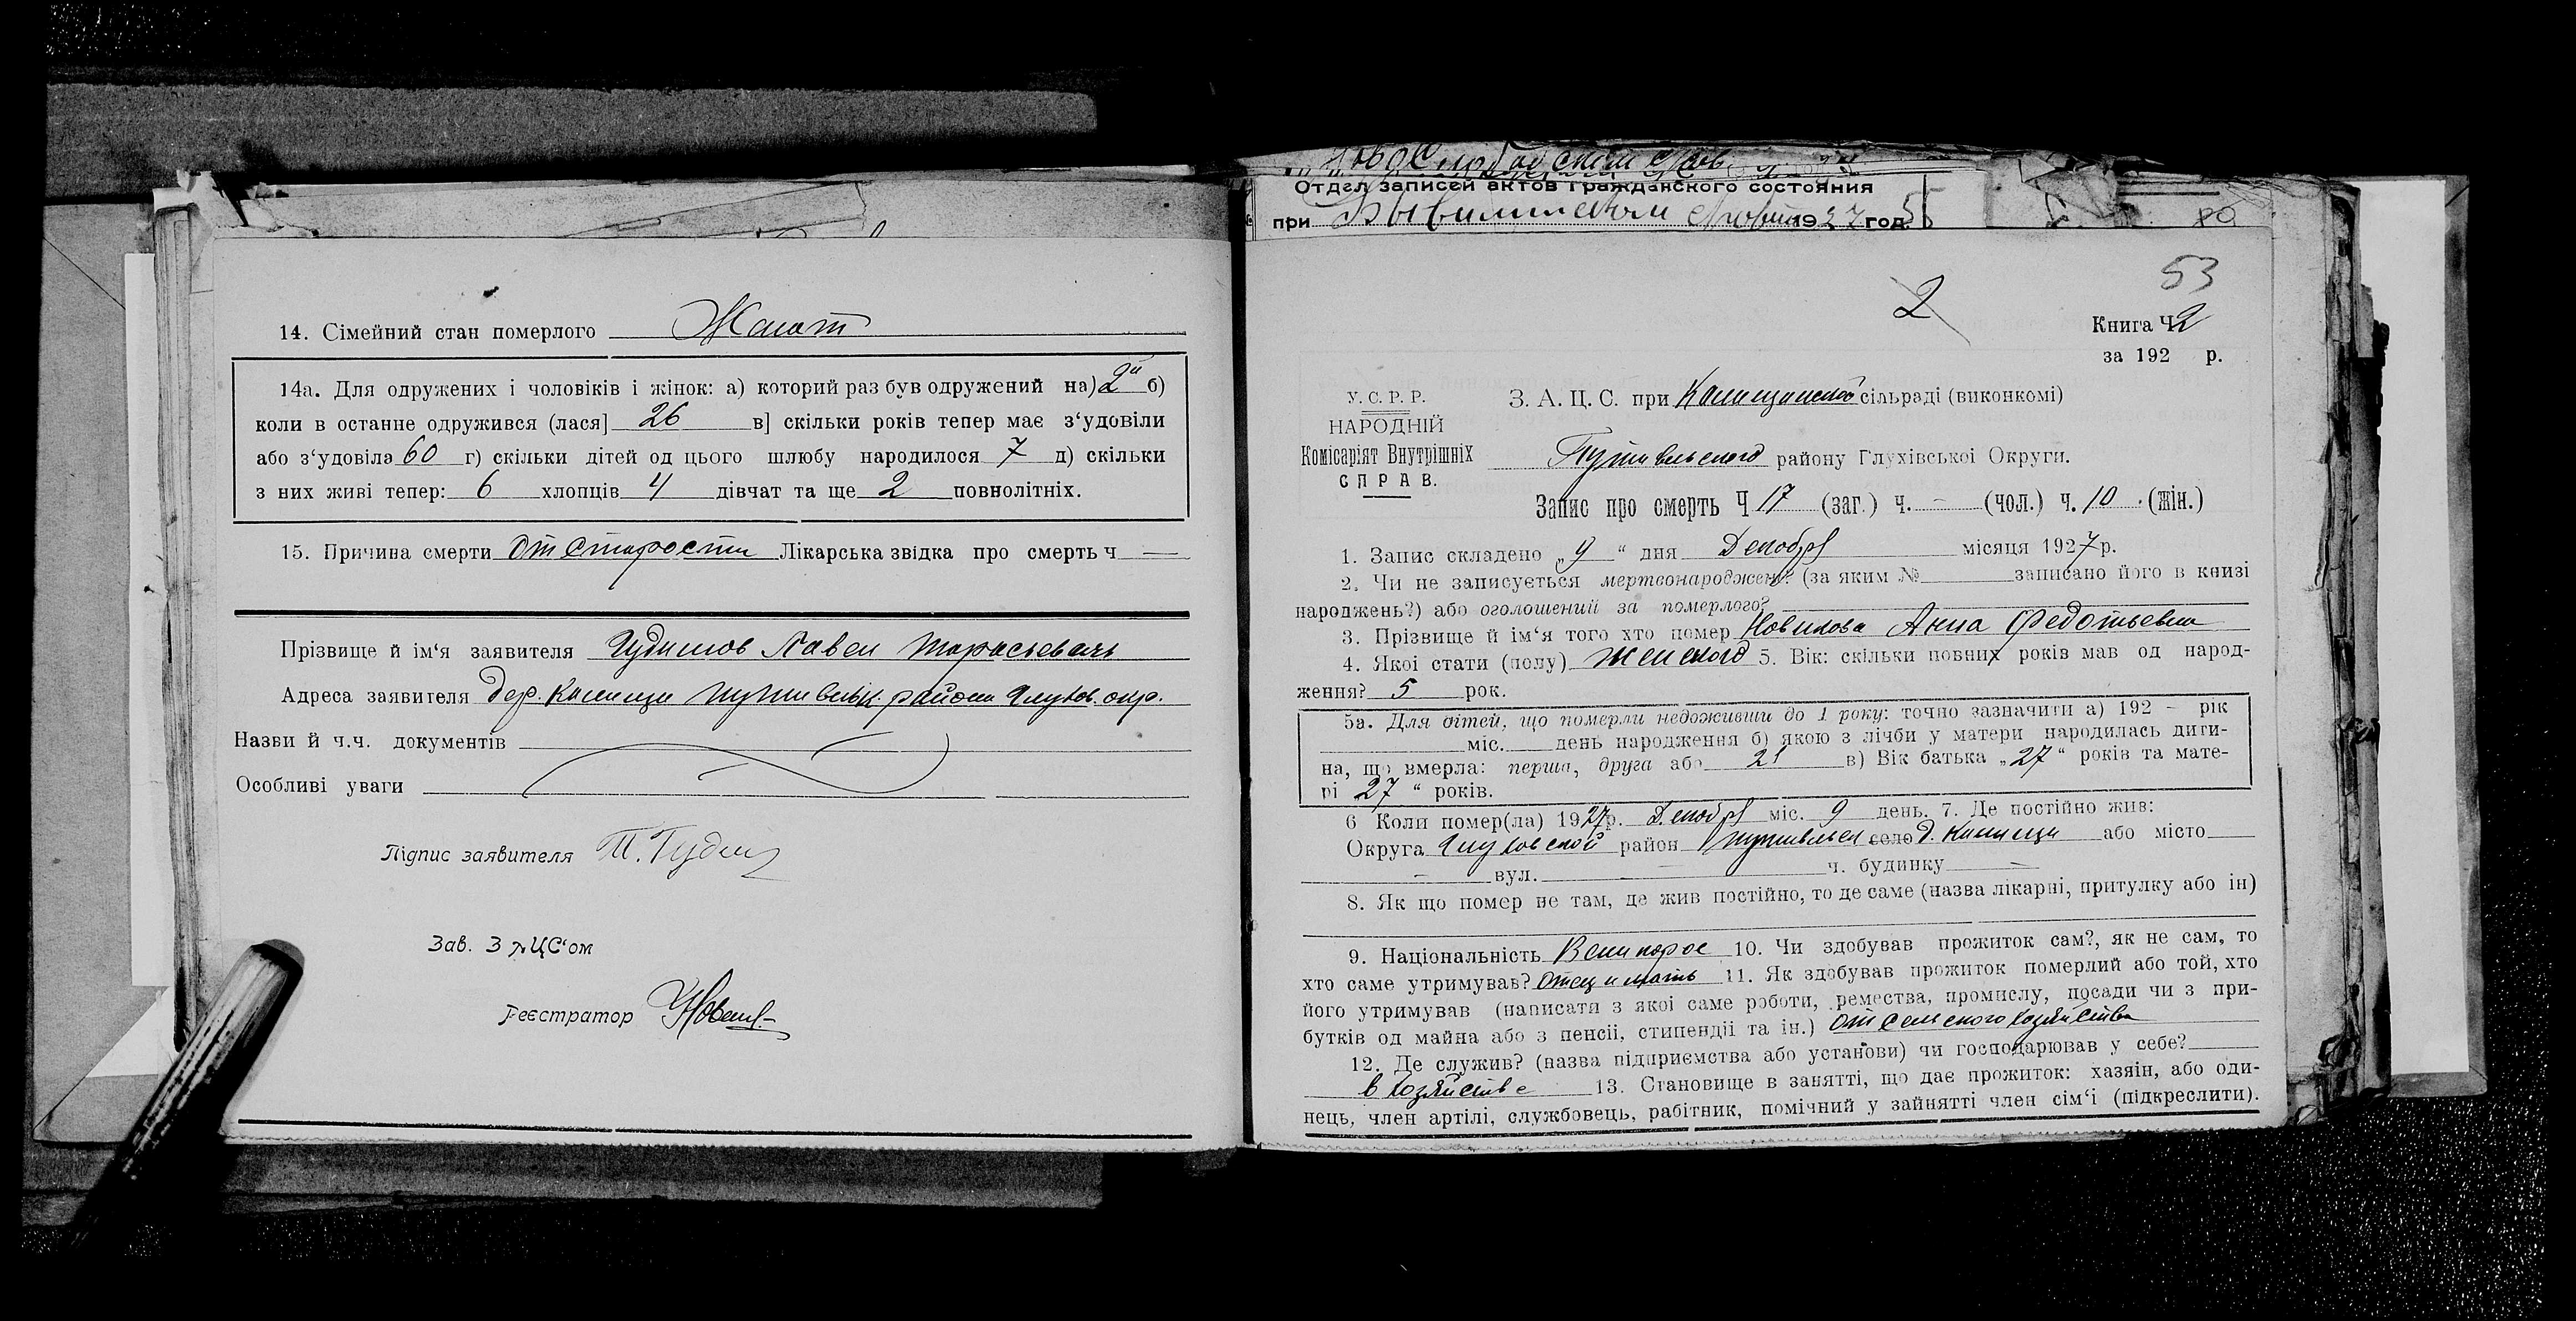 14. Сімейний стан померлого Женат
14а. Для одружених і чоловіків і жінок: а) которий раз був одружений на) 2й б)
коли в останнє одружився (лася] 26 в] скільки років тепер має з‘удовіли
або з‘удовіла 60 г) скільки дітей од цього шлюбу народилося 7 д) скільки
з них живі тепер: 6 хлопців 4 дівчат та ще 2 повнолітніх.
15. Причина смерти от старости Лікарська звідка про смерть ч —
Прізвище й ім‘я заявителя Павел Тарасьевич
Адреса заявителя дер. Калищи Путивльск. района Глухов. окр.
Назви й ч.ч. документів
Особливі уваги
Підпис заявителя П. Гудим
Зав. ЗАЦС‘ом
Реєстратор
Отдел записей актов гражданского состояния
при 1927 год.
53
2
Книга Ч 2
за 192 р.
У. С. Р. Р.
НАРОДНІЙ
Комісаріят Внутрішніх
СПРАВ.
З. А. Ц. С. при Калищинской сільраді (виконкомі)
Путивльского району Глухівської Округи.
Запис про смерть Ч 17 (заг.) ч. – (чол.) ч. 10 (жін.)
1. Запис складено „9“ дня Декабря місяця 1927 р.
2. Чи не записується мертвонароджен? (за яким № записано його в книзі
народжень?) або оголошений за померлого?
3. Прізвище й ім‘я того хто помер Новикова Анна Федотьевна
4. Якої стати (полу) Женского 5. Вік: скільки повних років мав од народ-
ження? 5 рок.
5а. Для дітей, що померли недоживши до 1 року: точно зазначити а) 192 – рік
міс. день народження б) якою з лічби у матери народилась дити-
на, що вмерла: перша, друга або 21 в) Вік батька „27“ років та мате-
рі 27 “ років.
6 Коли помер(ла) 1927р. Декабря міс. 9 день. 7. Де постійно жив:
Округа Глуховской район Путивльск село д. Калищи або місто —
— вул. — ч. будинку —
8. Як що помер не там, де жив постійно, то де саме (назва лікарні, притулку або ін)
9. Національність Великорос 10. Чи здобував прожиток сам?, як не сам, то
хто саме утримував? Отец и мать 11. Як здобував прожиток померлий або той, хто
його утримував (написати з якої саме роботи, ремества, промислу, посади чи з при-
бутків од майна або з пенсії, стипендії та ін.) от сельского хозяйства
12. Де служив? (назва підприємства або установи) чи господарював у себе?
в хозяйстве 13. Становище в занятті, що дає прожиток: хазяін, або оди-
нець, член артілі, службовець, рабітник, помічний у зайнятті член сім‘ї (підкреслити).